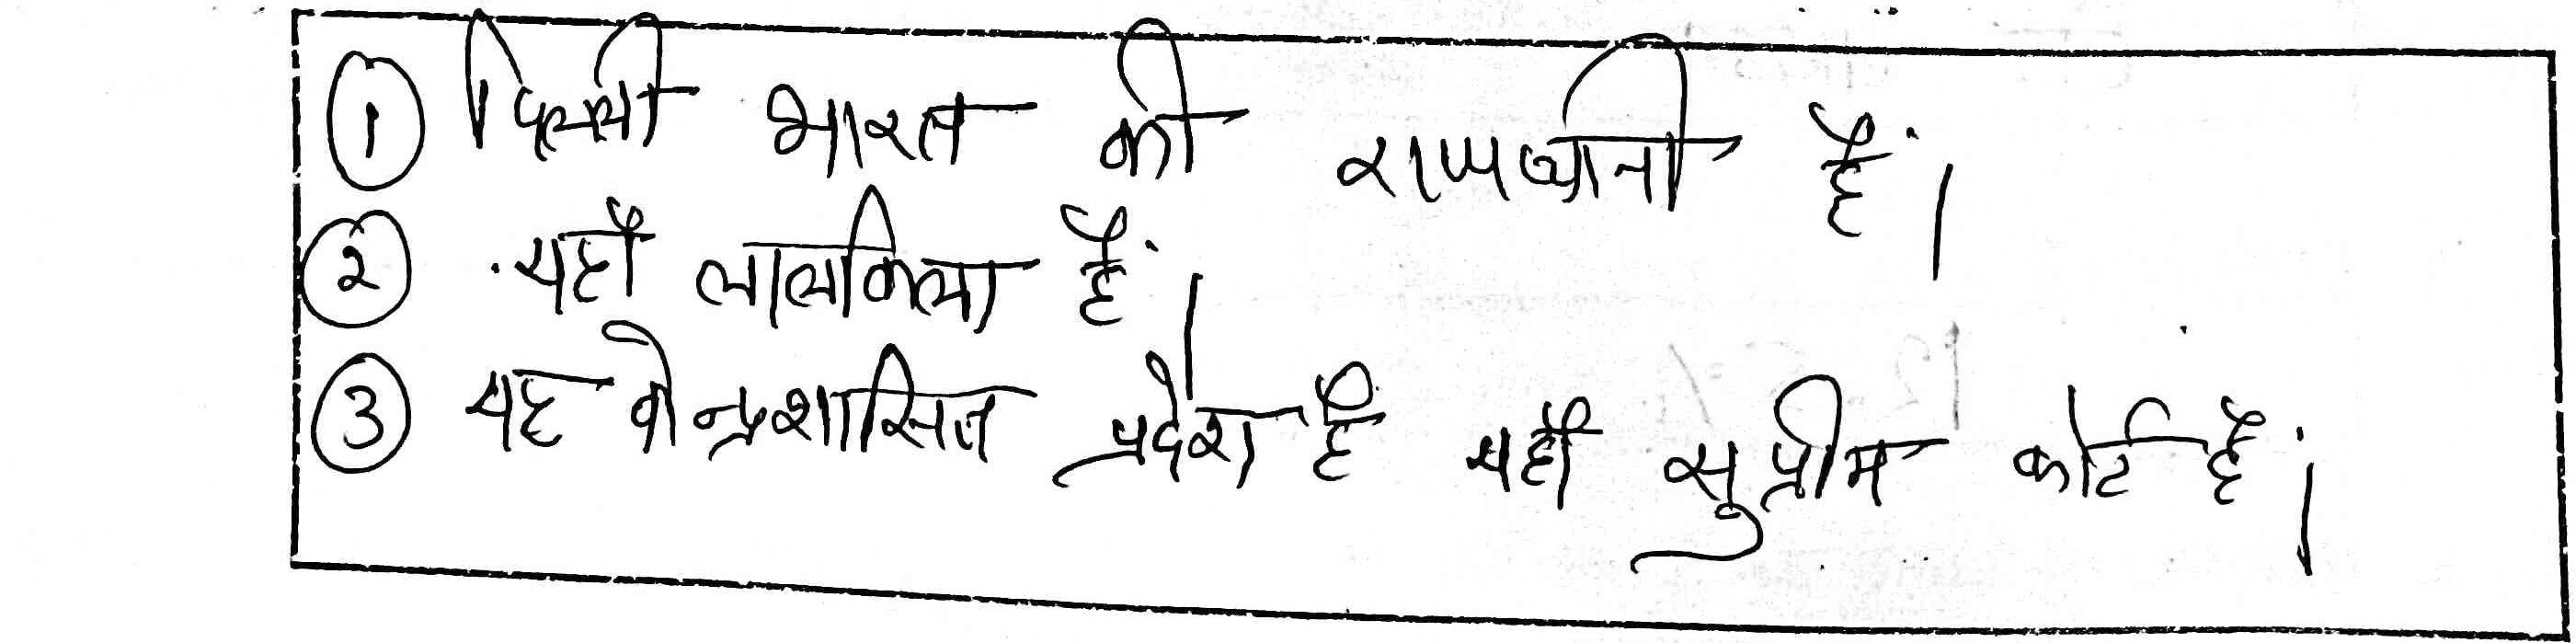 ① दिल्ली भारत की राजधानी हैं।
② यहाँ लालकिला हैं।
③ यह केन्द्रशासित प्रदेश हैं यहाँ सुप्रीम कोर्ट हैं।